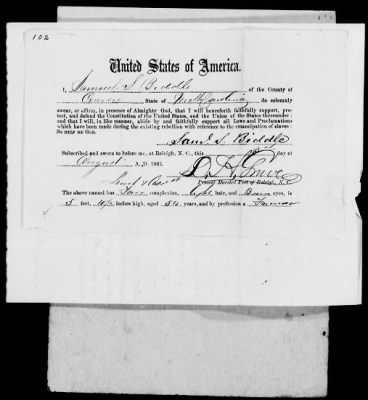 102
United States of America.
I, Samuel S. Biddle of the County of
Craven State of North Carolina do solemnly
swear, or affirm, in presence of Almighty God, that I will henceforth faithfully support, pro-
tect, and defend the Constitution of the United States, and the Union of the States thereunder;
and that I will, in like manner, abide by and faithfully support all Laws and Proclamations
which have been made during the existing rebellion with reference to the emancipation of slaves:
So HELP ME GOD.
Saml. S. Biddle
Subscribed and sworn to before me, at Raleigh, N. C., this day of
August A. D. 1865.
Provost Marshal Post of Raleigh, N. C.
The above named has Fair complexion, Light hair, and eyes, is
5 feet, inches high, aged 54 years, and by profession a Farmer